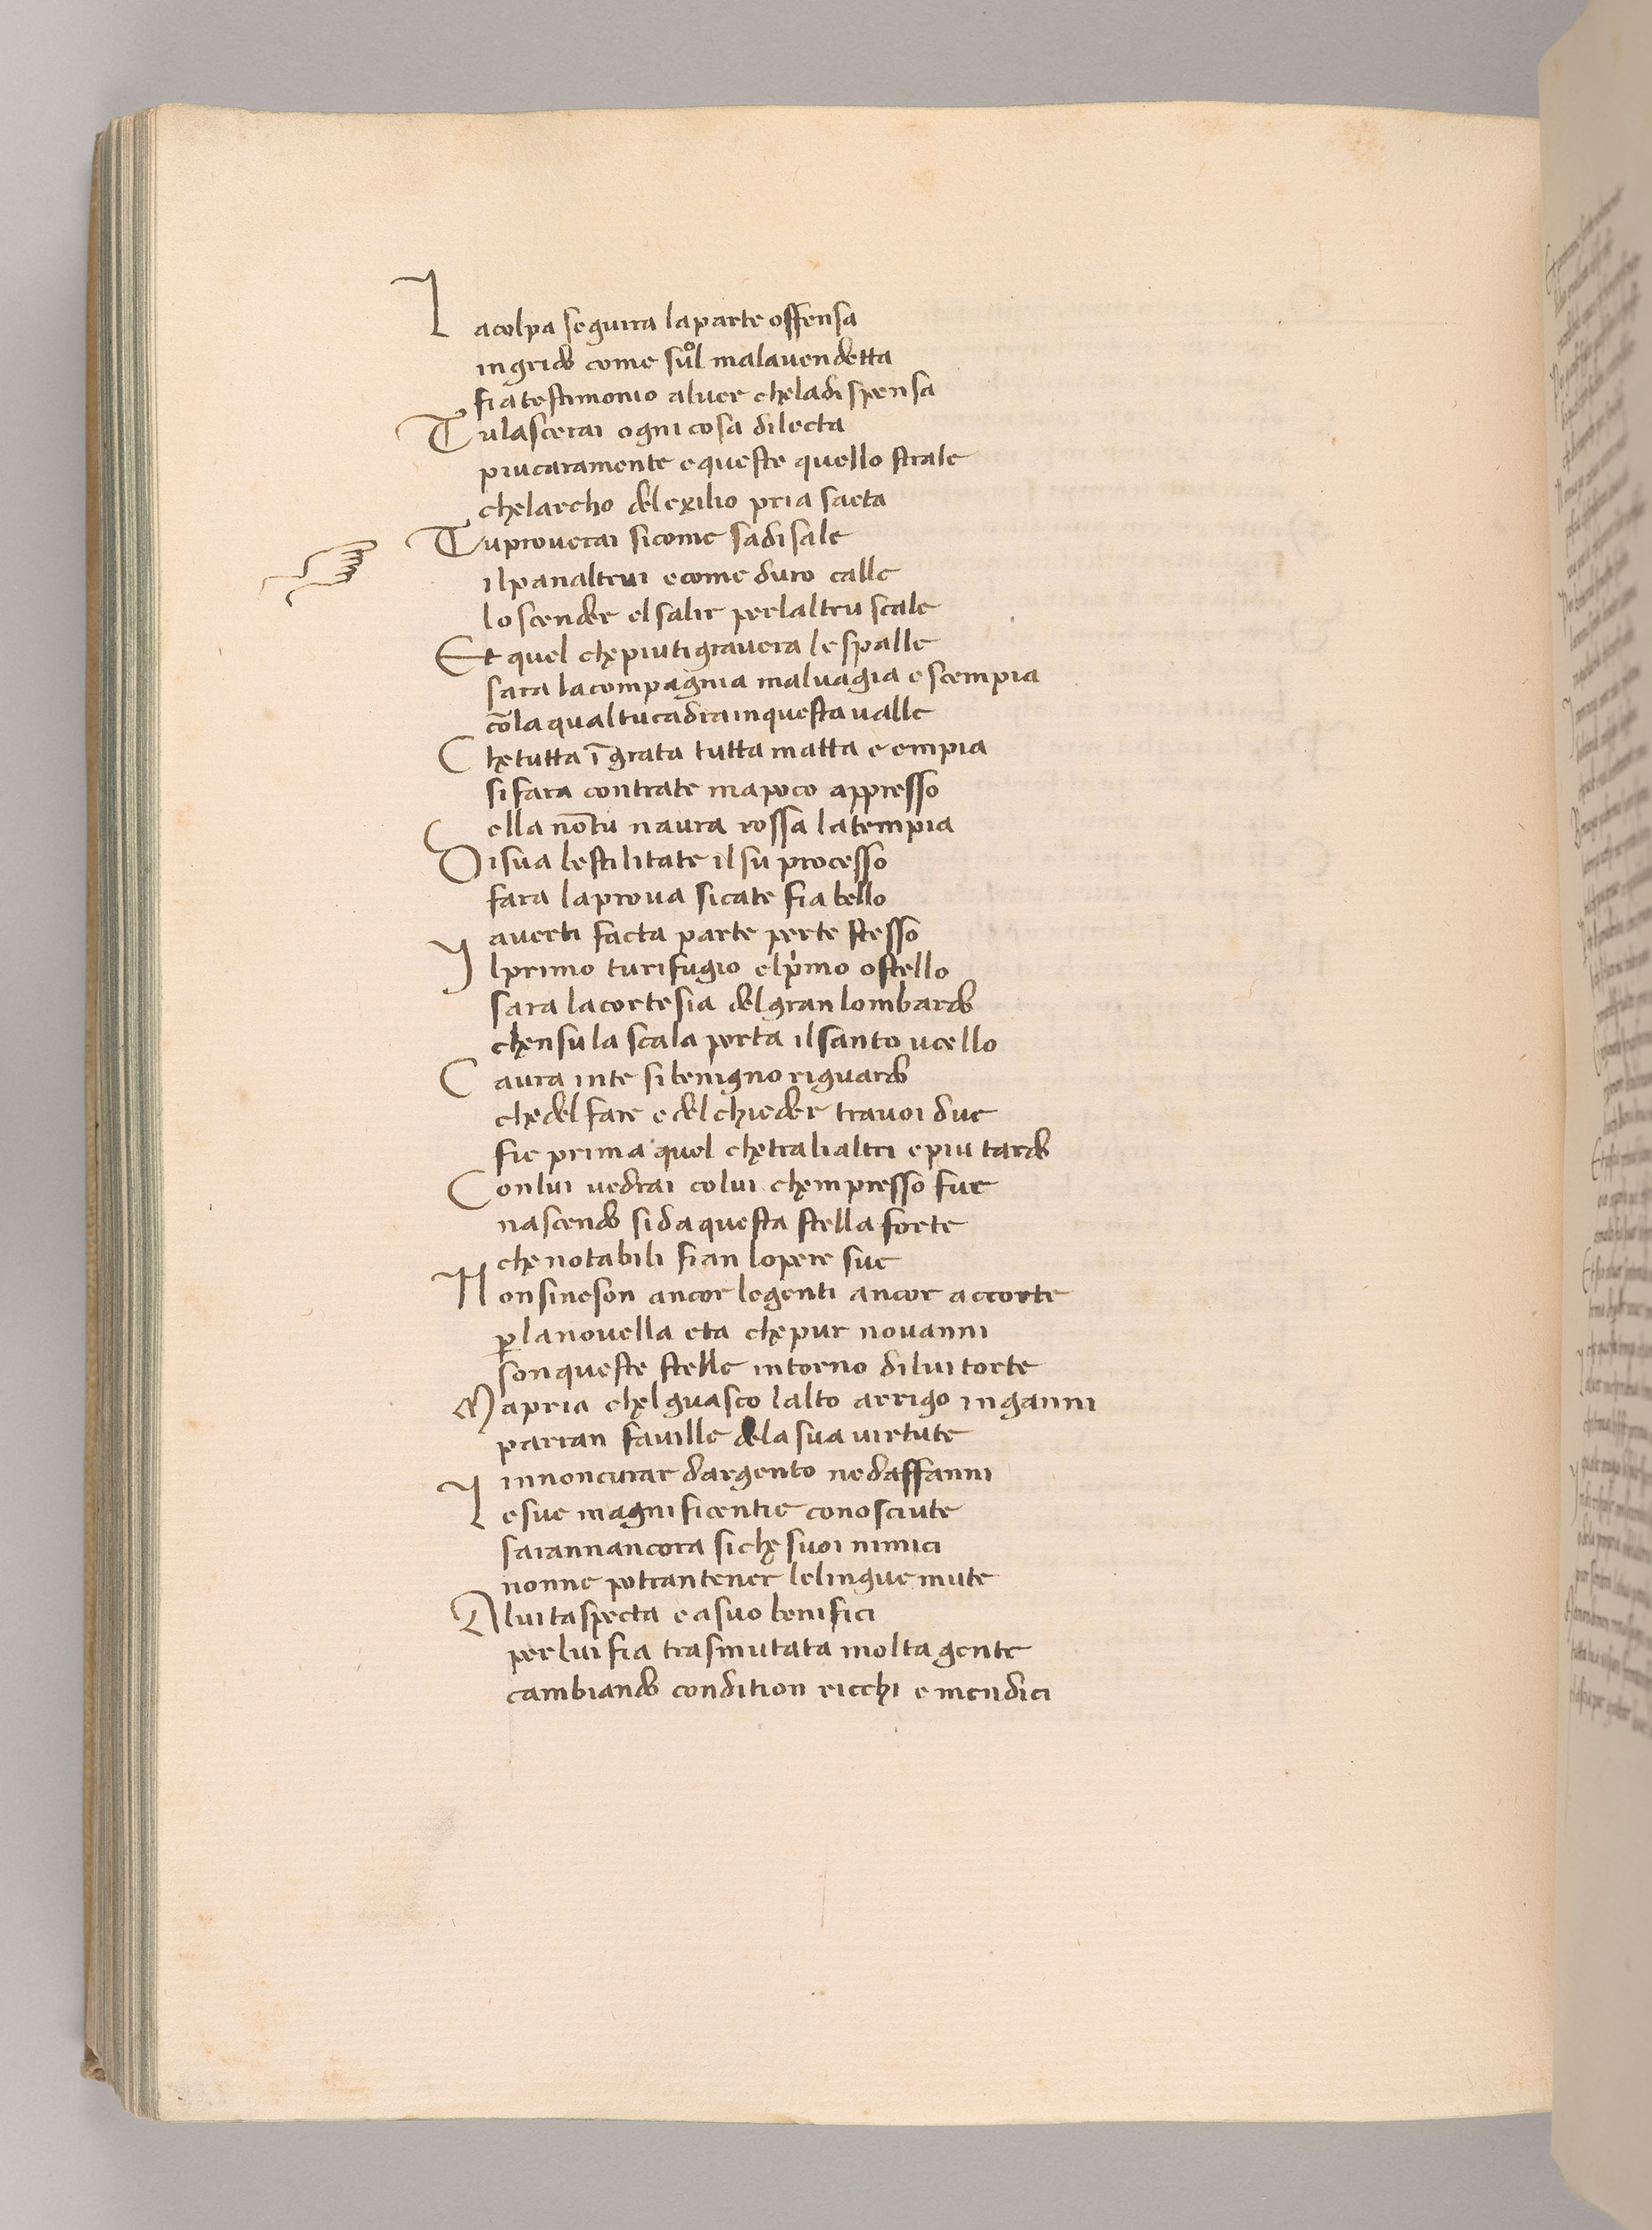 Lacolpa seguira laparte offensa
ingrido come suol malavendetta
fiatestimonio alver cheladispensa
Tulascerai ognicosa dilecta
piucaramente equeste quello strale
chelarcho delexilio pria saeta
Tuproverai sicome sadisale
ilpanaltrui ecome duro calle
loscender elsalir perlaltru scale
Et quel chepiutigravera lespalle
sara lacompagnia malvagia escempia
cōlaqualtucadrainquestavalle
Chetutta īgrata tutta matta e empia
sifara contrate mapoco appresso
ella nōtu navra rossa latempia
Disua bestilitate ilsu processo
fara laprova sicate fia bello
averti facta parte perte stesso
Ilprimo turifugio elprimo ostello
sara lacortesia delgran lombardo
chensula scala porta ilsanto ucello
Cavra inte sibenigno riguardo
chedelfare e delchieder travoi due
fie prima quel chetralialtri epiu tardo
Conlui vedrai colui chempresso fue
nascendo sidaquesta stella forte
chenotabili fian lopere sue
Nonsineson ancor legenti ancor accorte
ꝑlanovella eta chepur novanni
sonqueste stelle intorno dilui torte
Mapria chelguasco lalto arrigo inganni
parran faville delasua virtute
innoncurar dargento nedaffanni
Lesue magnificentie conosciute
sarannancora siche suoi nimici
nonne potrantener lelingue mute
Aluitaspecta e asuo benifici
perlui fia trasmutata molta gente
cambiando condition ricchi e mendici